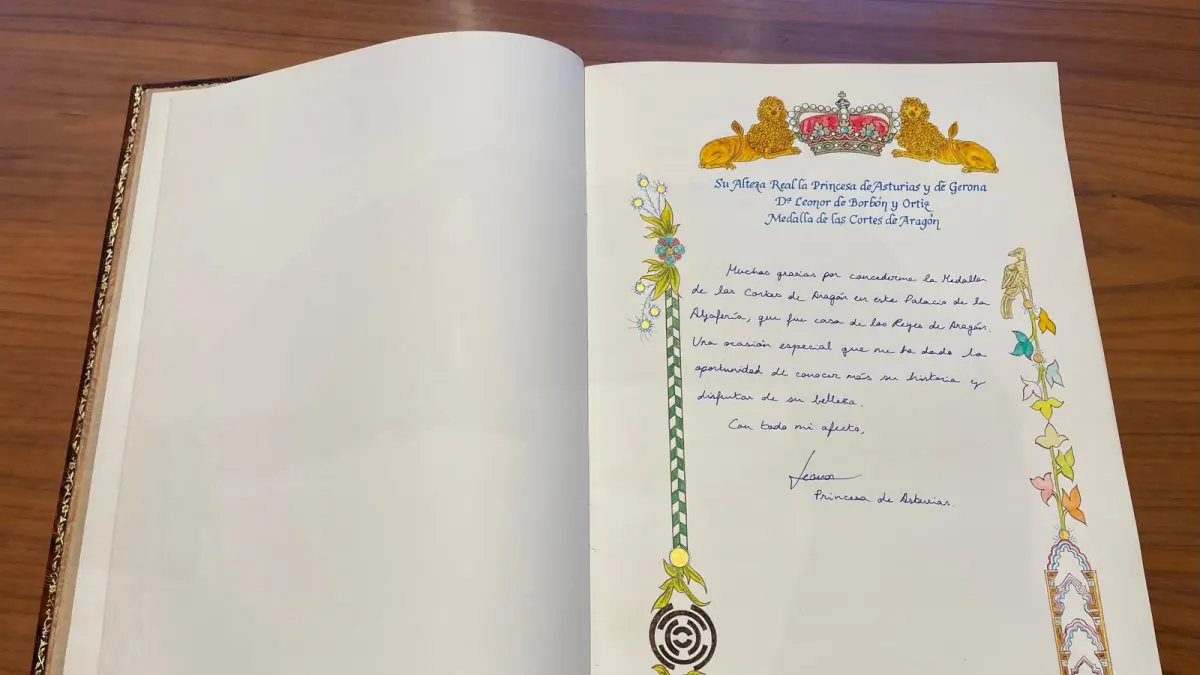 Su Alteza Real la Princesa de Asturias y de Gerona
Dª Leonor de Borbón y Ortiz
Medalla de las Cortes de Aragón
Muchas gracias por concederme la Medalla
de las Cortes de Aragón en este Palacio de la
Aljafería, que fue casa de los Reyes de Aragón.
Una ocasión especial que me ha dado la
oportunidad de conocer más su historia y
disfrutar de su belleza.
Con todo mi afecto,
Leonor
Princesa de Asturias.